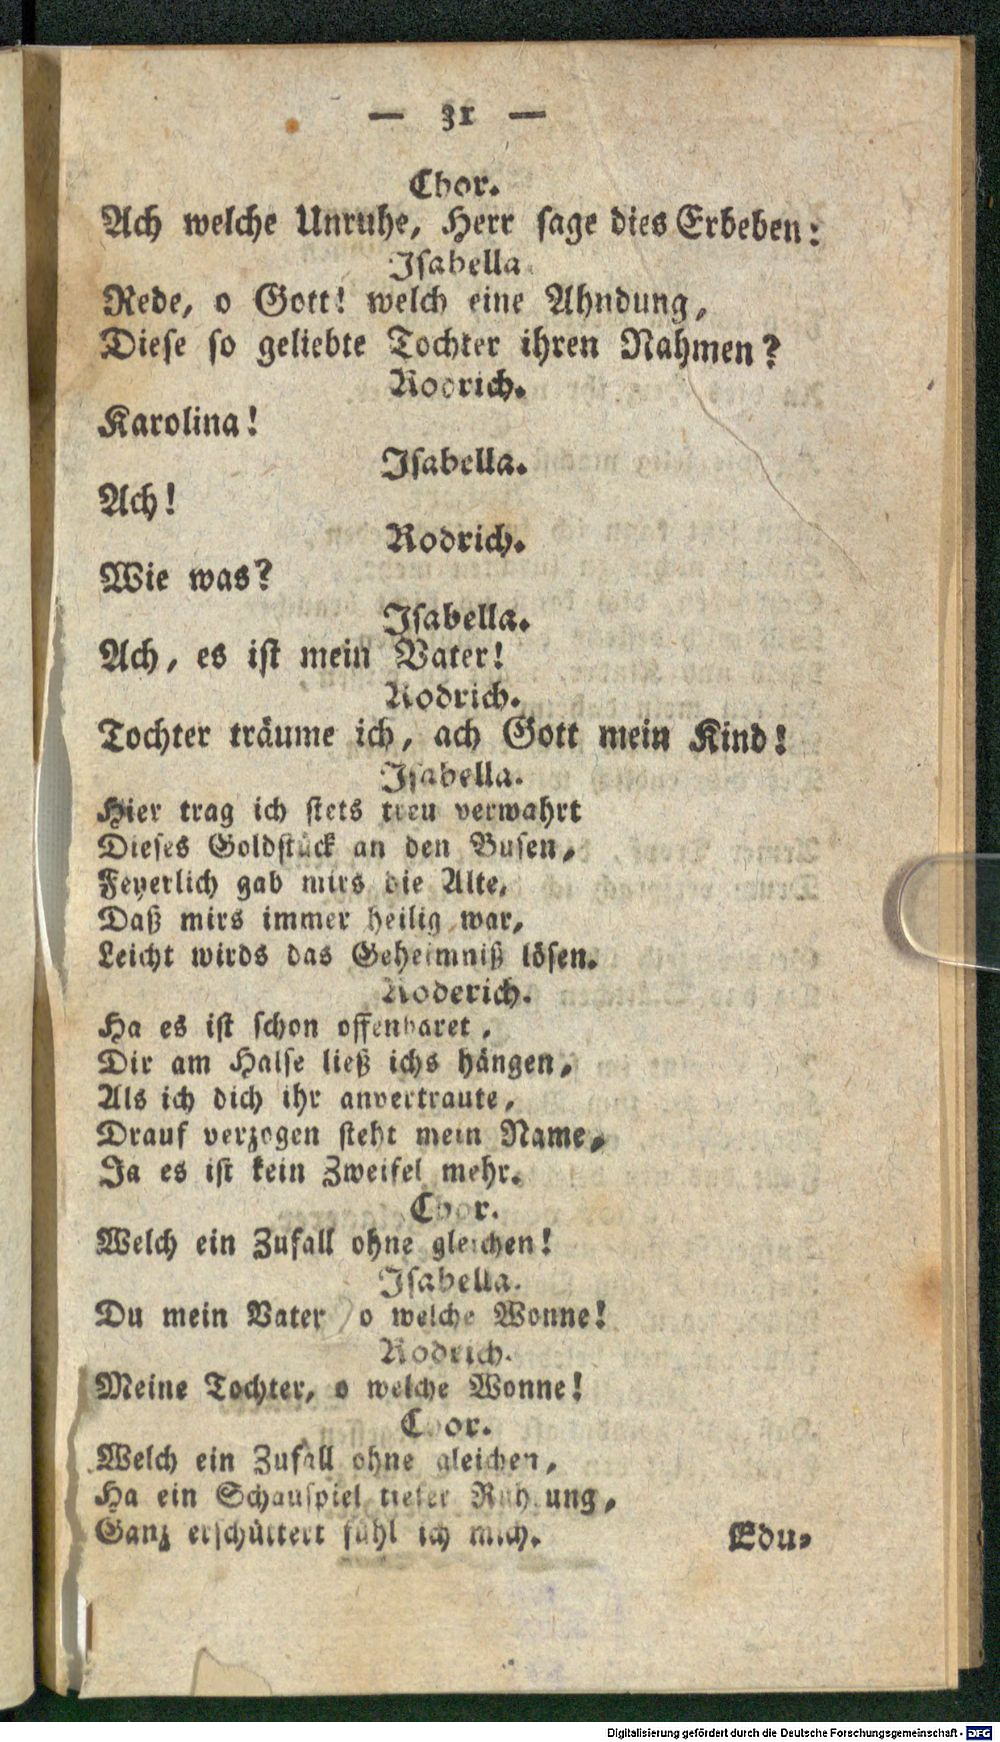 — 31 —
Chor.
Ach welche Unruhe, Herr sage dies Erbeben:
Isabella.
Rede, o Gott! welch eine Ahndung,
Diese so geliebte Tochter ihren Nahmen?
Rodrich.
Karolina!
Isabella.
Ach!
Rodrich.
Wie was?
Isabella.
Ach, es ist mein Vater!
Rodrich.
Tochter träume ich, ach Gott mein Kind!
Isabella.
Hier trag ich stets treu verwahrt
Dieses Goldstück an den Busen,
Feyerlich gab mirs die Alte,
Daß mirs immer heilig war,
Leicht wirds das Geheimniß lösen.
Roderich.
Ha es ist schon offenbaret,
Dir am Halse ließ ichs hängen,
Als ich dich ihr anvertraute,
Drauf verzogen steht mein Name,
Ja es ist kein Zweifel mehr.
Chor.
Welch ein Zufall ohne gleichen!
Isabella.
Du mein Vater o welche Wonne!
Rodrich.
Meine Tochter, o welche Wonne!
Chor.
Welch ein Zufall ohne gleichen,
Ha ein Schauspiel tiefer Rührung,
Ganz erschüttert fühl ich mich.
Edu-
Digitalisierung gefördert durch die Deutsche Forschungsgemeinschaft - DFG